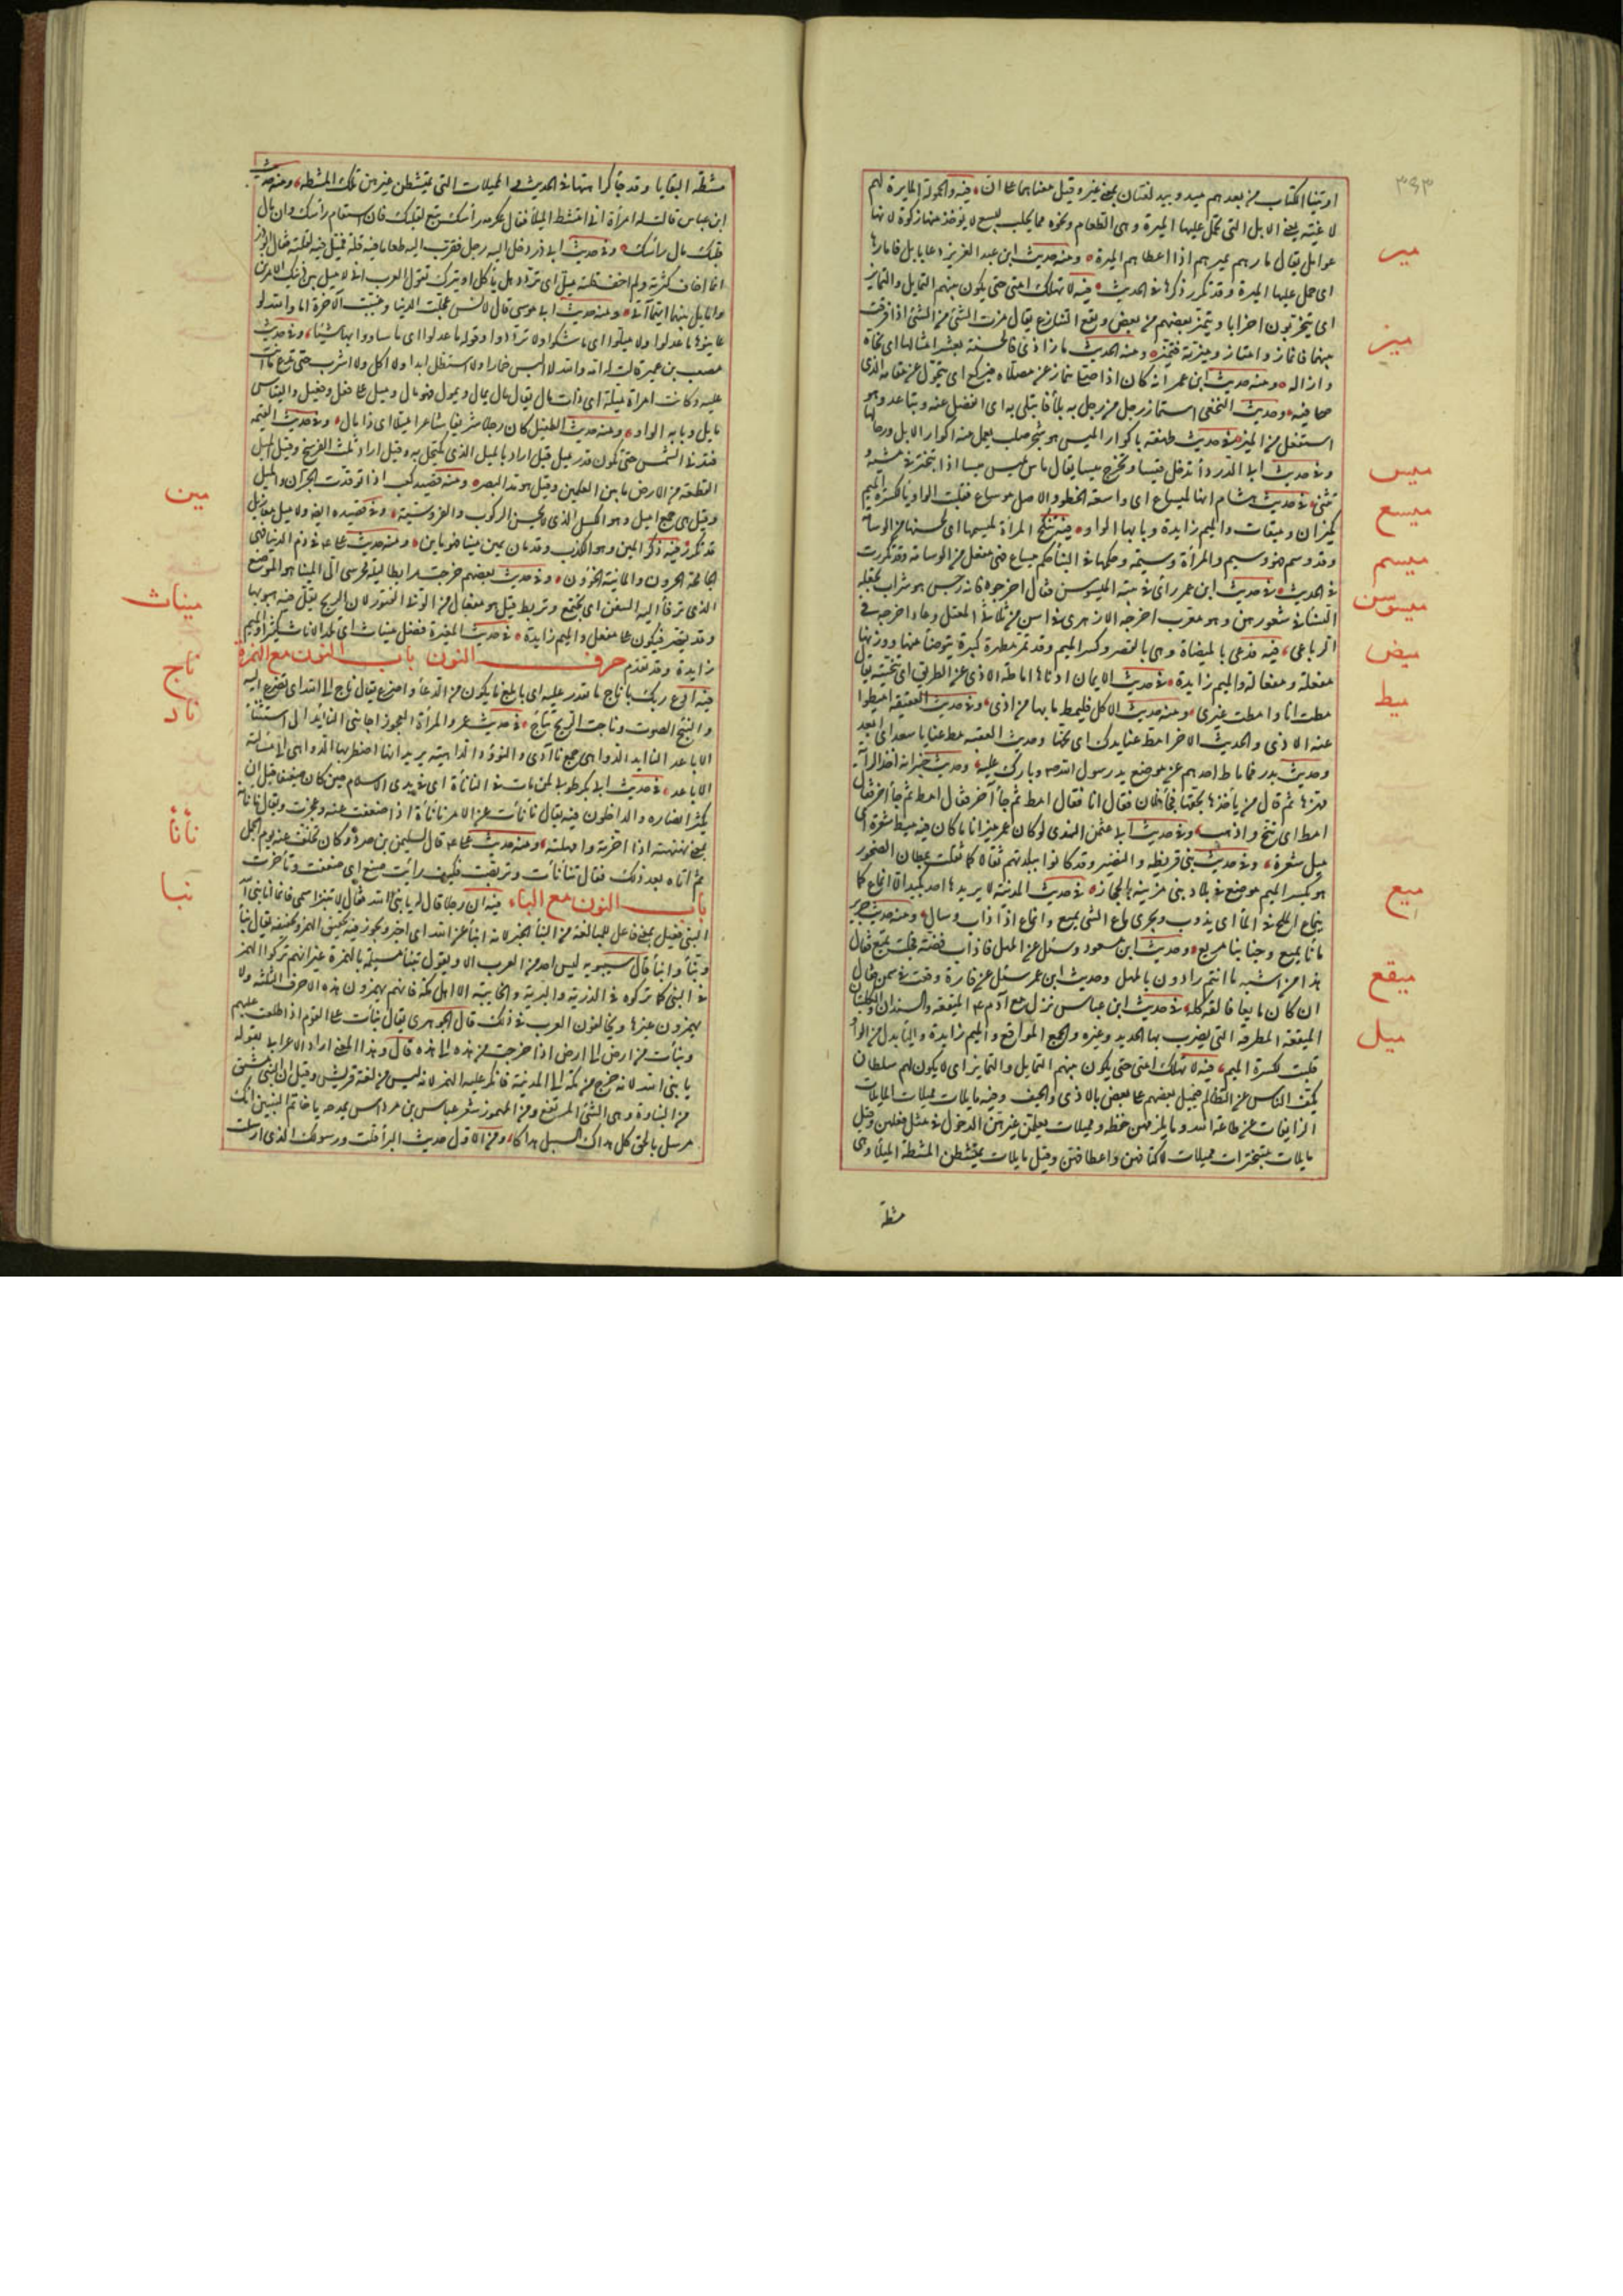 ٣٤٣
اوتينا الكتاب من بعدهم ميد وبيد لغتان بمعنى غير وقيل معناهما على ان فيه والحمولة المايرة لهم
لاغية يعنى الابل التى تحمل عليها الميرة وهى الطعام ونحوه مما يجلب للبيع لا يؤخذ منها زكوة لانها
مير
عوامل يقال مارهم يميرهم اذا اعطاهم الميرة ومنه حديث ابن عبد العزيز دعا بابل فامارها
اى حمل عليها الميرة وقد تكرر ذكرها فى الحديث فيه لا تهلك امتى حتى يكون بينهم التمايل والتمايز
ميز
اى يتحزبون احزابا ويتميز بعضهم من بعض ويقع التنازع يقال مزت الشئ من الشئ اذا فرقت
بينهما فانماز وامتاز وميزته فتميز ومنه الحديث من ماز اذى فالحسنة بعشر امثالها اى نحاه
وازاله ومنه حديث ابن عمر انه كان اذا صلى ينماز عن مصلاه فيركع اى يتحول عن مقامه الذى
صلى فيه وحديث النخعى استماز رجل من رجل به بلاء فابتلى به اى انفصل عنه وتباعد وهو
استفعل من الميز فى حديث طهفة باكوار الميس هو شجر صلب يعمل منه اكوار الابل ورحالها
ميس
وفى حديث ابى الدرداء تدخل قيسا وتخرج ميسا يقال ماس يميس ميسا اذا تبختر فى مشيه
وتثنى فى حديث هشام انها لميساع اى واسعة الخطو والاصل موساع فقلبت الواو ياء لكسرة الميم
ميسع
كميزان وميقات والميم زايدة وبابها الواو فيه تنكح المرأة لميسمها اى لحسنها من الوسامة
وقد وسم فهو وسيم والمرأة وسيمة وحكمها فى البناء حكم ميساع فهى مفعل من الوسامة وقد تكررت
ميسم
فى الحديث فى حديث ابن عمر رأى فى بيته الميسوسن فقال اخرجوه فانه رجس هو شراب تجعله
ميسوسن
النساء فى شعورهن وهو معرب اخرجه الازهرى فى اسن من ثلاثى المعتل وعاد اخرجه فى
الرباعى فيه فدعى بالميضاة وهى بالقصر وكسر الميم وقد تمد مطهرة كبيرة يتوضأ منها ووزنها
ميض
مفعلة ومفعالة والميم زايدة فى حديث الايمان ادناها اماطة الاذى عن الطريق اى تنحيته يقال
ميط
مطت انا وامطت غيرى ومنه حديث الاكل فليمط ما بها من اذى وفى حديث العقيقة اميطوا
عنه الاذى والحديث الاخر امط عنا يدك اى نحها وحديث العقبة مط عنا يا سعد اى ابعد
وحديث بدر فما ماط احدهم عن موضع يد رسول الله وحديث خيبر انه اخذ الراية
فهزها ثم قال من يأخذها بحقها فجاء فلان فقال انا فقال امط ثم جاء آخر فقال امط ثم جاء آخر فقال
امط اى تنح واذهب وفى حديث ابى عثمن النهدى لو كان عمر ميزانا ما كان فيه ميط شعرة اى
ميل شعرة وفى حديث بنى قريظة والنضير وقد كانوا ببلدتهم ثقالا كما ثقلت بميطان الصخور
هو بكسر الميم موضع فى بلاد بنى مزينة بالحجاز فى حديث المدينة لا يريدها احد بكيد الا انماع كما
ميع
ينماع الملح فى الماء اى يذوب ويجرى ماع الشئ يميع وانماع اذا ذاب وسال ومنه حديث جرير
ماءنا يميع وجنابنا مريع وحديث ابن مسعود وسئل عن المهل فاذاب فضة فجعلت تميع فقال
هذا من اشبه ما انتم راءون بالمهل وحديث ابن عمر سئل عن فارة وقعت فى سمن فقال
ان كان مايعا فالقه كله فى حديث ابن عباس نزل مع آدم ع م الميقعة والسندان والكلبتان
ميقع
الميقعة المطرقة التى يضرب بها الحديد وغيره والجمع المواقع والميم زايدة والياء بدل من الواو
قلبت لكسرة الميم فيه لا تهلك امتى حتى يكون بينهم التمايل والتمايز اى لا يكون لهم سلطان
ميل
يكف الناس عن التظالم فيميل بعضهم على بعض بالاذى والحيف وفيه مايلات مميلات المايلات
الزايغات عن طاعة الله وما يلزمهن حفظه ومميلات يعلمن غيرهن الدخول فى مثل فعلهن وقيل
مايلات متبخترات مميلات لاكتافهن واعطافهن وقيل مايلات يمتشطن المشطة الميلاء وهى
مشطة
مشطة البغايا وقد جاء كراهتها فى الحديث والمميلات التى يمشطن غيرهن تلك المشطة ومنه حديث
ابن عباس قالت له امرأة انى امتشط الميلاء فقال عكرمة رأسك تبع لقلبك فان استقام رأسك وان مال
قلبك مال رأسك وفى حديث ابى ذر دخل اليه رجل فقرب اليه طعاما فيه قلة فميل فيه لقلته فقال ابو ذر
انما اخاف كثرته ولم اخف قلته ميل اى تردد هل يأكل او يترك تقول العرب انى لاميل بين ذينك الامرين
واما يل بينهما ايهما آتى ومنه حديث ابى موسى قال لانس عجلت الدنيا وغيبت الآخرة اما والله لو
عاينوها ما عدلوا ولا ميلوا اى ما شكوا ولا ترددوا وقوله ما عدلوا اى ما ساووا بها شيئا وفى حديث
مصعب بن عمير قالت له امه والله لا البس خمارا ولا استظل ابدا ولا آكل ولا اشرب حتى تدع ما انت
عليه وكانت امرأة ميلة اى ذات مال يقال مال يمال ويمول فهو مال وميل على فعل وفيعل والقياس
مايل وبابه الواو ومنه حديث الطفيل كان رجلا شريفا شاعرا ميلا اى ذا مال وفى حديث القيمة
فتدنى الشمس حتى تكون قدر ميل قيل اراد بالميل الذى يكتحل به وقيل اراد ثلث الفرسخ وقيل الميل
القطعة من الارض ما بين العلمين وقيل هو مد البصر ومنه قصيد كعب اذا توقدت الحزان والميل
مين
وقيل هى جمع اميل وهو الكسل الذى لا يحسن الركوب والفروسية وفى قصيده ايضا ولا ميل معازيل
قد تكرر فيه ذكر المين وهو الكذب وقد مان يمين مينا فهو ماين ومنه حديث على ع م فى ذم الدنيا فهى
الجامحة الحرون والماينة الخؤون وفى حديث بعضهم خرجت مرابطا ليلة محرسى الى الميناء هو الموضع
الذى ترفأ اليه السفن اى تجتمع وتربط قيل هو مفعال من الونى الفتور لان الريح يقل فيه هبوبها
ميناث
وقد يقصر فيكون على مفعل والميم زايدة فى حديث المغيرة فضل ميناث اى تلد الاناث كثيرا والميم
زايدة وقد تقدم حرف النون باب النون مع الهمزة
ناج
فيه ادع ربك باناج ما تقدر عليه اى بابلغ ما يكون من الدعاء واضرع يقال ناج الى الله اى تضرع اليه
ناد
والنئيج الصوت وناجت الريح تنأج فى حديث عمر والمرأة العجوز اجاءتنى النآئد الى استيشاء
الاباعد النآئد الدواهى جمع نآدى والنؤد والداهية يريد انها اضطرتها الدواهى الى مسألة
الاباعد فى حديث ابى بكر طوبى لمن مات فى النأنأة اى فى بدء الاسلام حين كان ضعيفا قبل ان
نأنأ
يكثر انصاره والداخلون فيه يقال نأنأت عن الامر نأنأة اذا ضعفت عنه وعجزت ويقال نأنأته
بمعنى نهنهته اذا اخرته وامهلته ومنه حديث على ع م قال لسليمن بن صرد وكان تخلف عنه يوم الجمل
ثم اتاه بعد ذلك فقال تنأنأت وتربصت فكيف رأيت صنع اى ضعفت وتأخرت
باب النون مع الباء فيه ان رجلا قال له يا نبئ الله فقال لا تنبز اسمى فانما انا نبى آ
نبا
النبى فعيل بمعنى فاعل للمبالغة من النبأ الخبر لانه انبأ عن الله اى اخبر ويجوز فيه تحقيق الهمز وتخفيفه يقال نبأ
ونبأ وانبأ قال سيبويه ليس احد من العرب الا ويقول تنبأ مسيلمة بالهمزة غير انهم تركوا الهمز
فى النبى كما تركوه فى الذرية والبرية والخابية الا اهل مكة فانهم يهمزون هذه الاحرف الثلثة ولا
يهمزون غيرها ويخالفون العرب فى ذلك قال الجوهرى يقال نبأت على القوم اذا طلعت عليهم
ونبأت من ارض الى ارض اذا خرجت من هذه الى هذه قال وهذا المعنى اراد الاعرابى بقوله
يا نبئ الله لانه خرج من مكة الى المدينة فانكر عليه الهمز لانه ليس من لغة قريش وقيل ان النبى مشتق
من النباوة وهى الشئ المرتفع ومن المهموز شعر عباس بن مرداس يمدحه يا خاتم النبئين انك
مرسل بالحق كل هداك السبيل هداكا ومن الاول حديث البراء قلت ورسولك الذى ارسلت